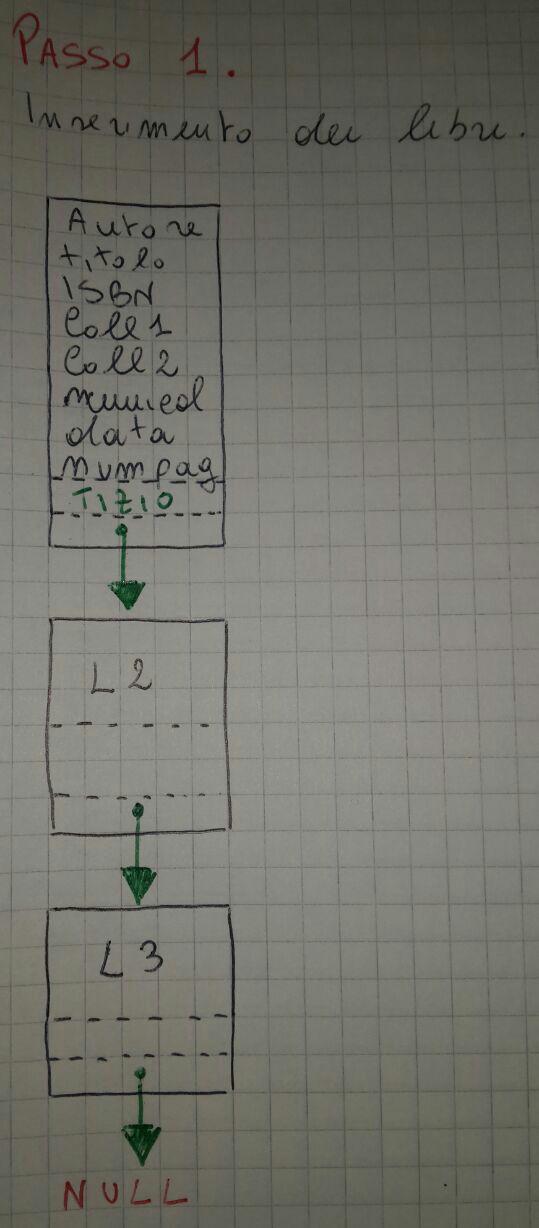 PASSO 1.
Inserimento dei libri.
Autore
titolo
ISBN
Coll1
Coll2
data
numpag
TIZIO
L2
L3
NULL